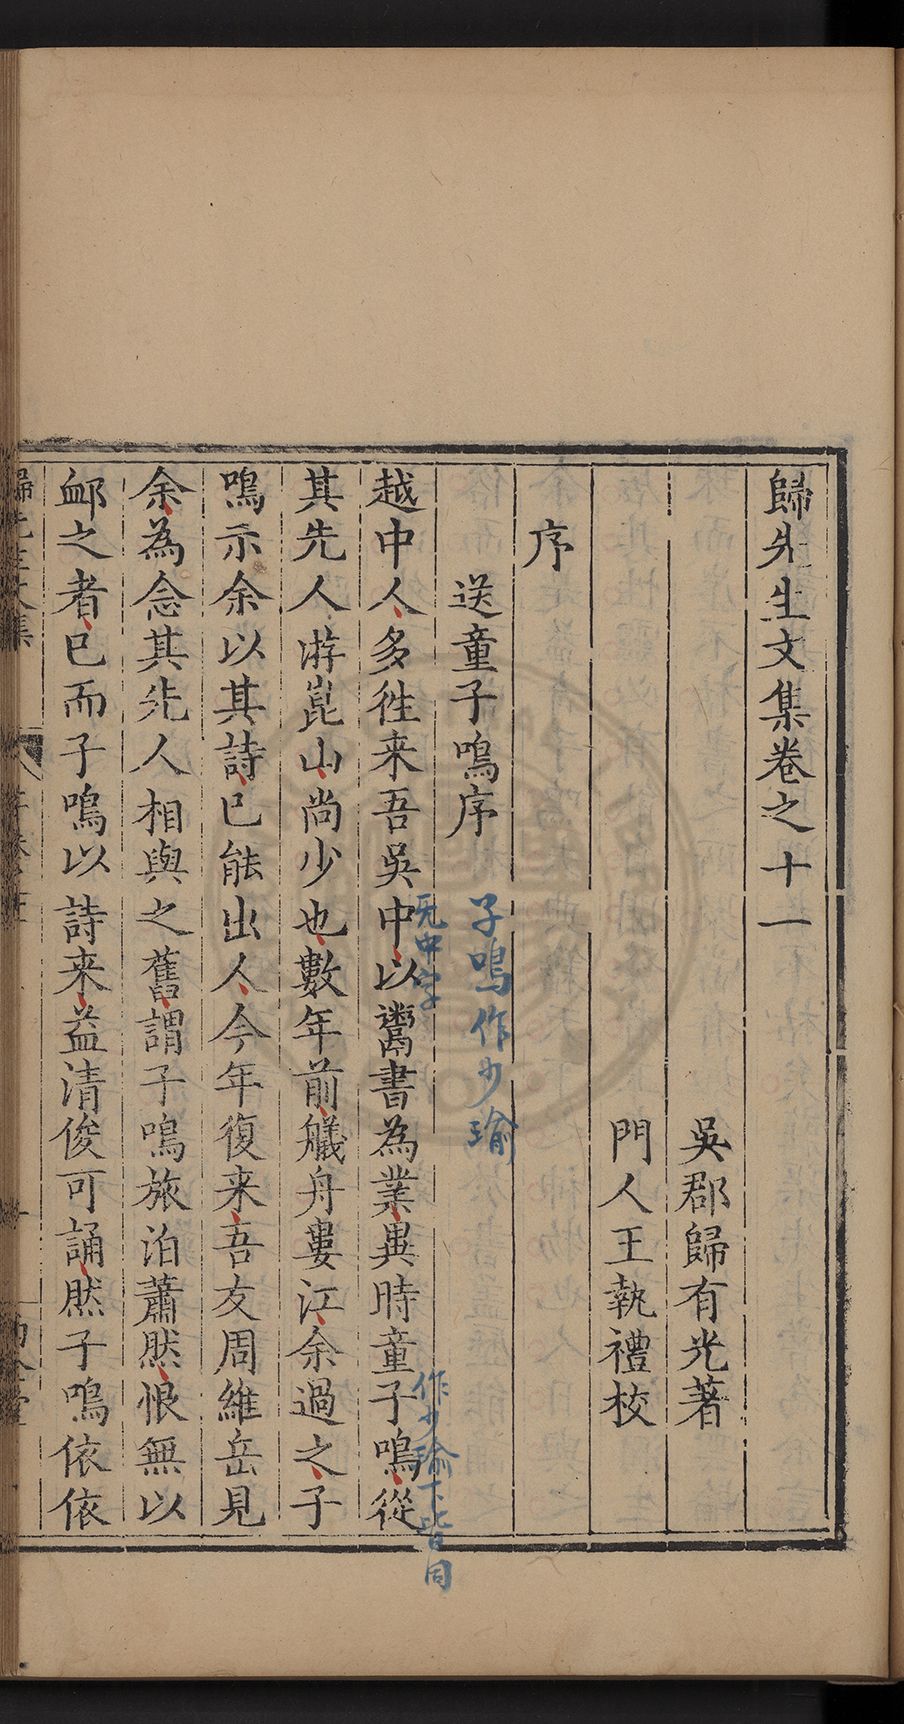 歸先生文集卷之十一
吳郡歸有光著
門人王執禮校
序
送童子鳴序
子鳴作少瑜
越中人多徃来吾吳中以鬻書為業異時童子鳴從
无中字
作少瑜下皆同
其先人游崑山尚少也數年前艤舟婁江余過之子
鳴示余以其詩已能出人今年復来吾友周維岳見
余為念其先人相與之舊謂子鳴旅泊蕭然恨無以
衈之者已而子鳴以詩来益清俊可誦然子鳴依依